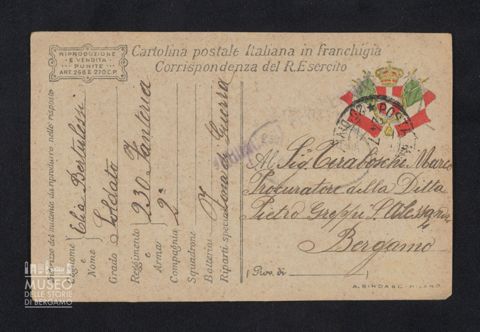 RIPRODUZIONE
E VENDITA
PUNITE
ART. 268 E 270 C.P.
Cartolina postale Italiana in franchigia
Corrispondenza del R. Esercito
Indirizzo del mittente da riprodurre nelle risposte
Cognome e Nome Elia Bertulessi
Grado Soldato
Reggimento e Arma 230 Fanteria
Compagnia 2a
Squadrone
Batteria
Riparti speciali Zona di Guerra
POSTA
Al Sig. Ceraboschi Marco
Procuratore della Ditta
Pietro Greppi S. Alessandro
Bergamo
(Prov. di
A. BINDA & C. - MILANO
MUSEO
DELLE STORIE
DI BERGAMO